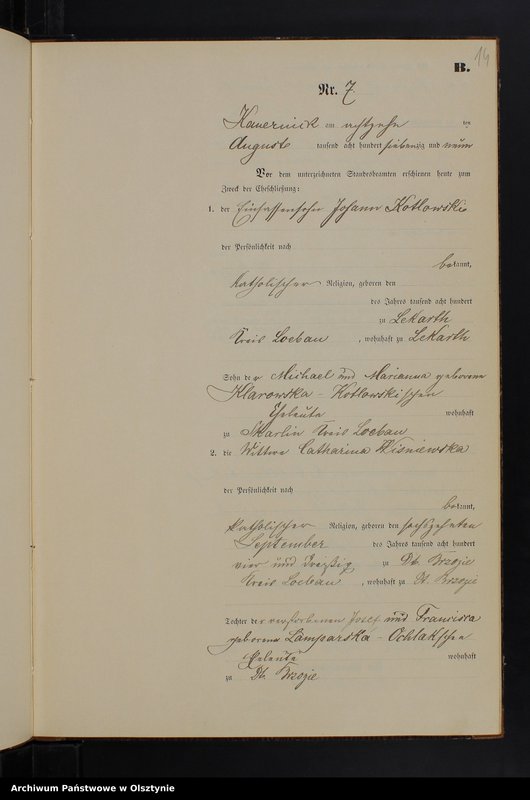 B. 14
Nr. 7
Kauernick am achtzehn ten
August tausend acht hundert siebenzig und neun
Vor dem unterzeichneten Standesbeamten erschienen heute zum
Zweck der Eheschließung:
1. der Einsassensohn Johann Kotlowski
der Persönlichkeit nach
bekannt,
katholischer Religion, geboren den
des Jahres tausend acht hundert
zu Lekarth
Kreis Loebau, wohnhaft zu Lekarth
Sohn der Michael und Marianna geborene
Klarowska - Kotlowskischen
Eheleute wohnhaft
zu Skarlin Kreis Loebau
2. die Wittwe Catharina Wisniewska
der Persönlichkeit nach
bekannt,
katholischer Religion, geboren den sechszehnten
September des Jahres tausend acht hundert
vier und dreißig zu Dt. Brzozie
Kreis Loebau, wohnhaft zu Dt. Brzozie
Tochter der verstorbenen Josef und Francisca
geborene Lamparska - Ochlak'schen
Eheleute wohnhaft
zu Dt. Brzozie
Archiwum Państwowe w Olsztynie